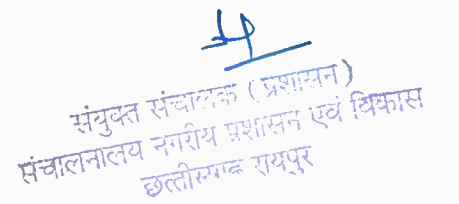 संयुक्त संचालक (प्रशासन)
संचालनालय नगरीय प्रशासन एवं विकास
छत्तीसगढ़ रायपुर